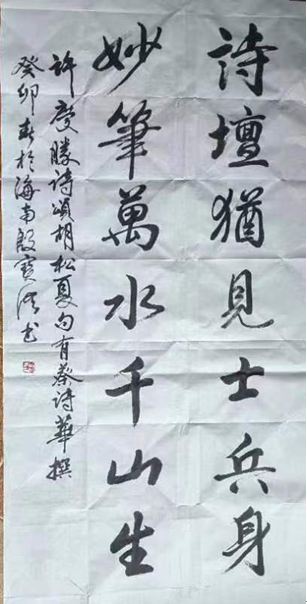 詩壇猶見士兵身
妙筆萬水千山生
許慶勝詩頌胡松夏句有蔡詩華撰
癸卯春於海南殷寶洪書